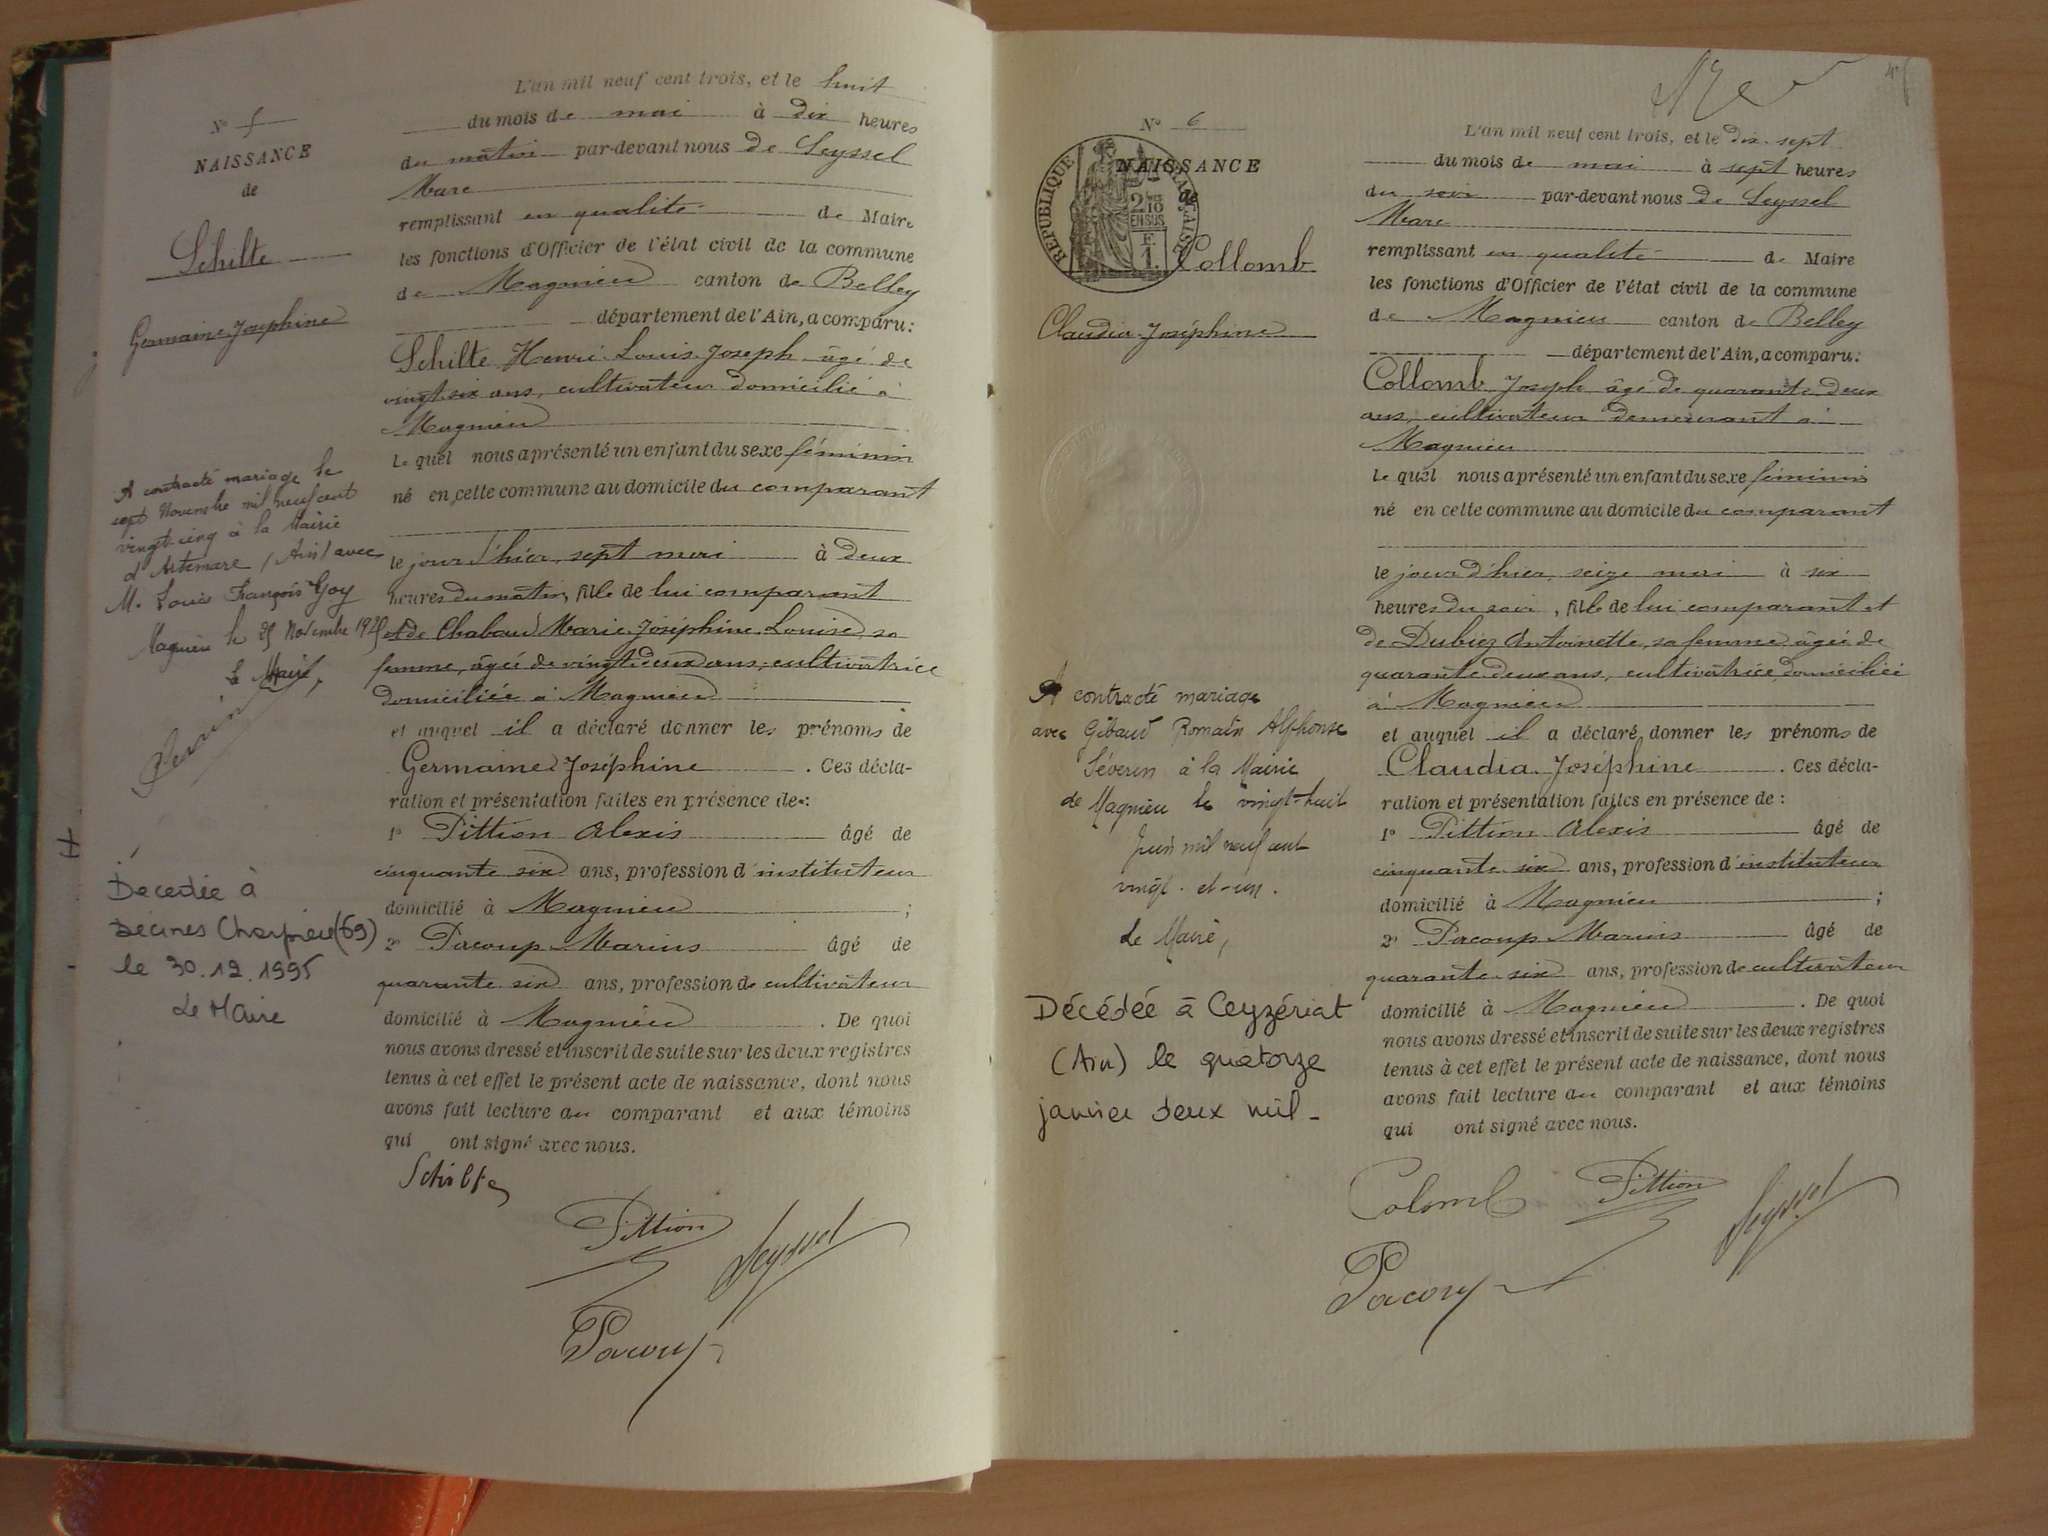 N° 5
NAISSANCE
de
Schilte
Germaine Joséphine
A contracté mariage le
sept Novembre mil neuf cent
vingt-cinq à la Mairie
d'Artemare (Ain) avec
M. Louis François Goy
Magnieu le 25 Novembre 1925
Le Maire,
Perrin
Décédée à
Décines Charpieu (69)
le 30.12.1995
Le Maire
L'an mil neuf cent trois, et le huit
du mois de mai à dix heures
du matin par-devant nous De Seyssel
Marc
remplissant en qualité de Maire
les fonctions d'Officier de l'état civil de la commune
de Magnieu canton de Belley
département de l'Ain, a comparu:
Schilte Henri Louis Joseph âgé de
vingt six ans, cultivateur domicilié à
Magnieu
Le quel nous a présenté un enfant du sexe féminin
né en cette commune au domicile du comparant
le jour d'hier, sept mai à deux
heures du matin, fille de lui comparant
et de Chaboud Marie Joséphine Louise sa
femme, âgée de vingt deux ans, cultivatrice
domiciliée à Magnieu
et auquel il a déclaré donner les prénoms de
Germaine Joséphine. Ces décla-
ration et présentation faites en présence de:
1° Pittion Alexis âgé de
cinquante six ans, profession d'instituteur
domicilié à Magnieu ;
2° Pacoup Marius âgé de
quarante six ans, profession de cultivateur
domicilié à Magnieu. De quoi
nous avons dressé et inscrit de suite sur les deux registres
tenus à cet effet le présent acte de naissance, dont nous
avons fait lecture au comparant et aux témoins
qui ont signé avec nous.
Schilte
Pittion
Seyssel
Pacoup
N° 6
NAISSANCE
de
RÉPUBLIQUE FRANÇAISE
2/10
EN SUS
F.
1.
Collomb
Claudia Joséphine
A contracté mariage
avec Gibaud Romain Alphonse
Séverin à la Mairie
de Magnieu le vingt-huit
Juin mil neuf cent
vingt-et-un.
Le Maire,
Décédée à Ceyzériat
(Ain) le quatorze
janvier deux mil_
L'an mil neuf cent trois, et le dix sept
du mois de mai à sept heures
du soir par-devant nous De Seyssel
Marc
remplissant en qualité de Maire
les fonctions d'Officier de l'état civil de la commune
de Magnieu canton de Belley
département de l'Ain, a comparu:
Collomb Joseph âgé de quarante deux
ans, cultivateur demeurant à
Magnieu
Le quel nous a présenté un enfant du sexe féminin
né en cette commune au domicile du comparant
le jour d'hier, seize mai à six
heures du soir, fille de lui comparant et
de Dubiez Antoinette, sa femme âgée de
quarante deux ans, cultivatrice domiciliée
à Magnieu
et auquel il a déclaré donner les prénoms de
Claudia Joséphine. Ces décla-
ration et présentation faites en présence de:
1° Pittion Alexis âgé de
cinquante six ans, profession d'instituteur
domicilié à Magnieu ;
2° Pacoup Marius âgé de
quarante six ans, profession de cultivateur
domicilié à Magnieu. De quoi
nous avons dressé et inscrit de suite sur les deux registres
tenus à cet effet le présent acte de naissance, dont nous
avons fait lecture au comparant et aux témoins
qui ont signé avec nous.
Colomb
Pittion
Seyssel
Pacoup